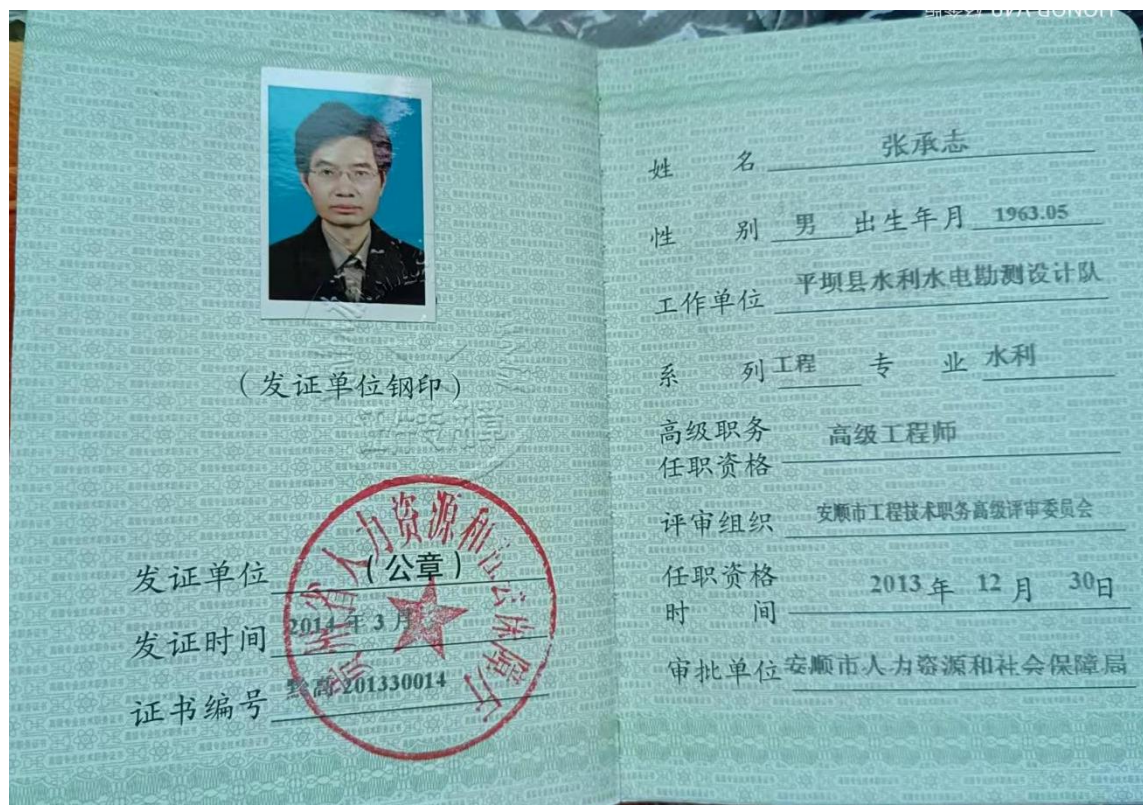 (发证单位钢印)
贵州省人力资源和社会保障厅
发证单位 (公章)
发证时间 2014年3月
证书编号 黔高201330014
姓 名 张承志
性 别 男 出生年月 1963.05
工作单位 平坝县水利水电勘测设计队
系 列 工程 专 业 水利
高级职务
任职资格 高级工程师
评审组织 安顺市工程技术职务高级评审委员会
任职资格
时 间 2013年12月30日
审批单位 安顺市人力资源和社会保障局